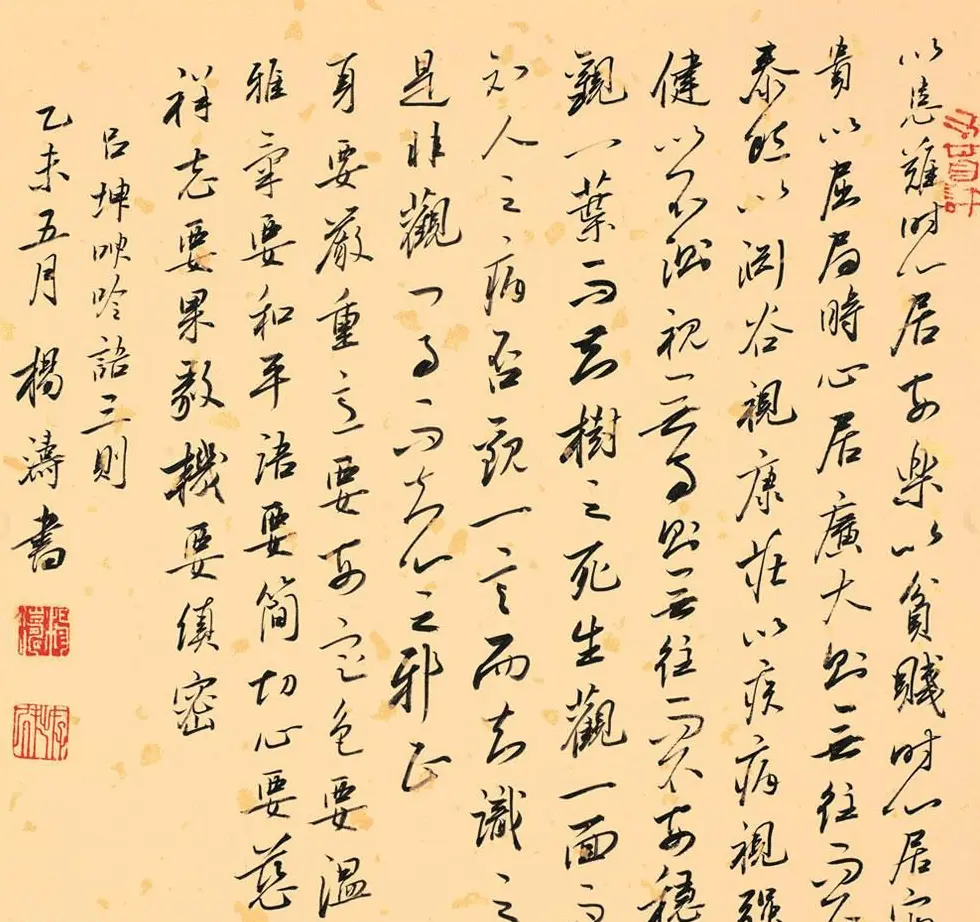 以患難时心居安樂以貧賤时心居富
貴以屈局時心居廣大則無往而不
泰然以淵谷視康莊以疾病視強
健以不測視無事則無往而不安穩
觀一葉而知樹之死生觀一面而
知人之病否觀一言而知識之
是非觀一事而知心之邪正
身要嚴重意要安定色要溫
雅氣要和平語要簡切心要慈
祥志要果毅機要縝密
吕坤呻吟語三則
乙未五月 楊濤書